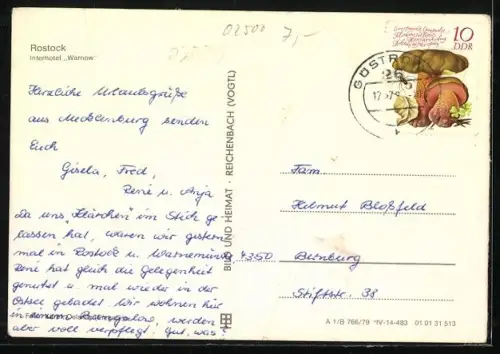 02500 7,-
Rostock
Interhotel „Warnow"
Herzliche Urlaubsgrüße
aus Mecklenburg senden
Euch
Gisela, Fred,
René u. Anja
Da uns „Klärchen" im Stich ge-
lassen hat, waren wir gestern
mal in Rostock u. Warnemünde,
René hat gleich die Gelegenheit
genutzt u. mal wieder in der
Ostsee gebadet. Wir wohnen hier
in einem Bungalow, werden
aber voll verpflegt. Gut, was?
BILD UND HEIMAT · REICHENBACH (VOGTL)
10
DDR
GÜSTR
26
Fam.
Helmut Bloßfeld
4350 Bernburg
Stiftstr. 38
A 1/B 766/79 IV-14-483 01 01 31 513